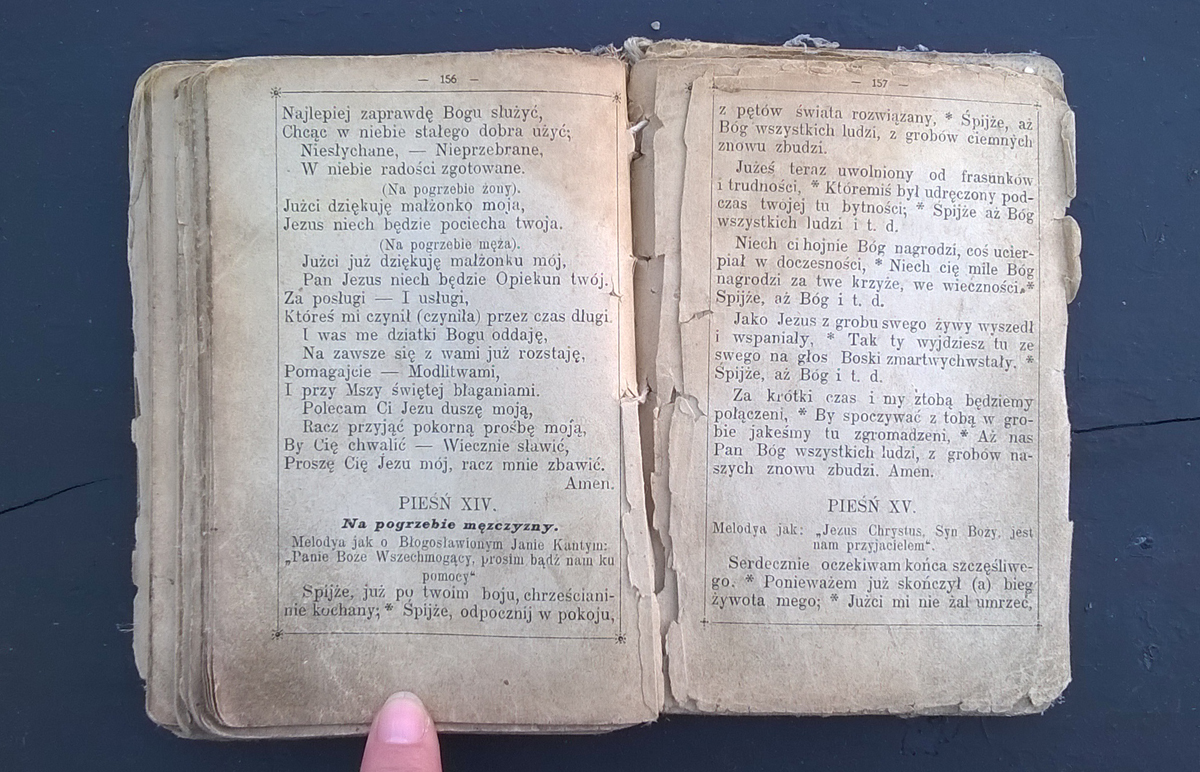 — 156 —
Najlepiej zaprawdę Bogu służyć,
Chcąc w niebie stałego dobra użyć;
Niesłychane, — Nieprzebrane,
W niebie radości zgotowane.
(Na pogrzebie żony).
Jużci dziękuję małżonko moja,
Jezus niech będzie pociecha twoja.
(Na pogrzebie męża).
Jużci już dziękuję małżonku mój,
Pan Jezus niech będzie Opiekun twój.
Za posługi — I usługi,
Któreś mi czynił (czyniła) przez czas długi.
I was me dziatki Bogu oddaję,
Na zawsze się z wami już rozstaję,
Pomagajcie — Modlitwami,
I przy Mszy świętej błaganiami.
Polecam Ci Jezu duszę moją,
Racz przyjąć pokorną prośbę moją,
By Cię chwalić — Wiecznie sławić,
Proszę Cię Jezu mój, racz mnie zbawić.
Amen.
PIEŚŃ XIV.
Na pogrzebie mężczyzny.
Melodya jak o Błogosławionym Janie Kantym:
„Panie Boże Wszechmogący, prosim bądź nam ku
pomocy“
Śpijże, już po twoim boju, chrześciani-
nie kochany; * Śpijże, odpocznij w pokoju,
— 157 —
z pętów świata rozwiązany, * Śpijże, aż
Bóg wszystkich ludzi, z grobów ciemnych
znowu zbudzi.
Jużeś teraz uwolniony od frasunków
i trudności, * Któremiś był udręczony pod-
czas twojej tu bytności; * Śpijże aż Bóg
wszystkich ludzi i t. d.
Niech ci hojnie Bóg nagrodzi, coś ucier-
piał w doczesności, * Niech cię mile Bóg
nagrodzi za twe krzyże, we wieczności, *
Śpijże, aż Bóg i t. d.
Jako Jezus z grobu swego żywy wyszedł
i wspaniały, * Tak ty wyjdziesz tu ze
swego na głos Boski zmartwychwstały, *
Śpijże, aż Bóg i t. d.
Za krótki czas i my ztobą będziemy
połączeni, * By spoczywać z tobą w gro-
bie jakeśmy tu zgromadzeni, * Aż nas
Pan Bóg wszystkich ludzi, z grobów na-
szych znowu zbudzi. Amen.
PIEŚŃ XV.
Melodya jak: „Jezus Chrystus, Syn Boży, jest
nam przyjacielem“.
Serdecznie oczekiwam końca szczęśliwe-
go. * Ponieważem już skończył (a) bieg
żywota mego; * Jużci mi nie żal umrzeć,